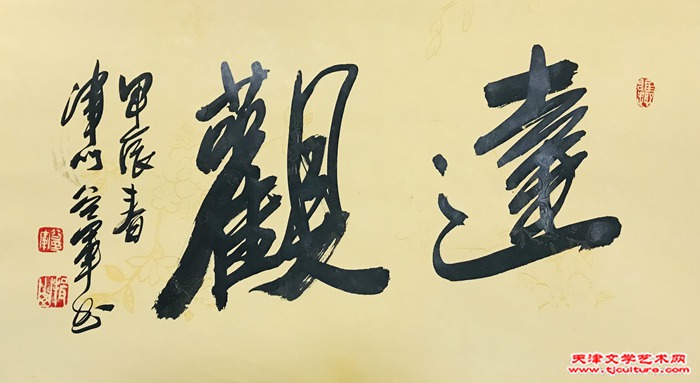 達觀
甲辰春
津門谷軍书
天津文学艺术网
www.tjculture.com